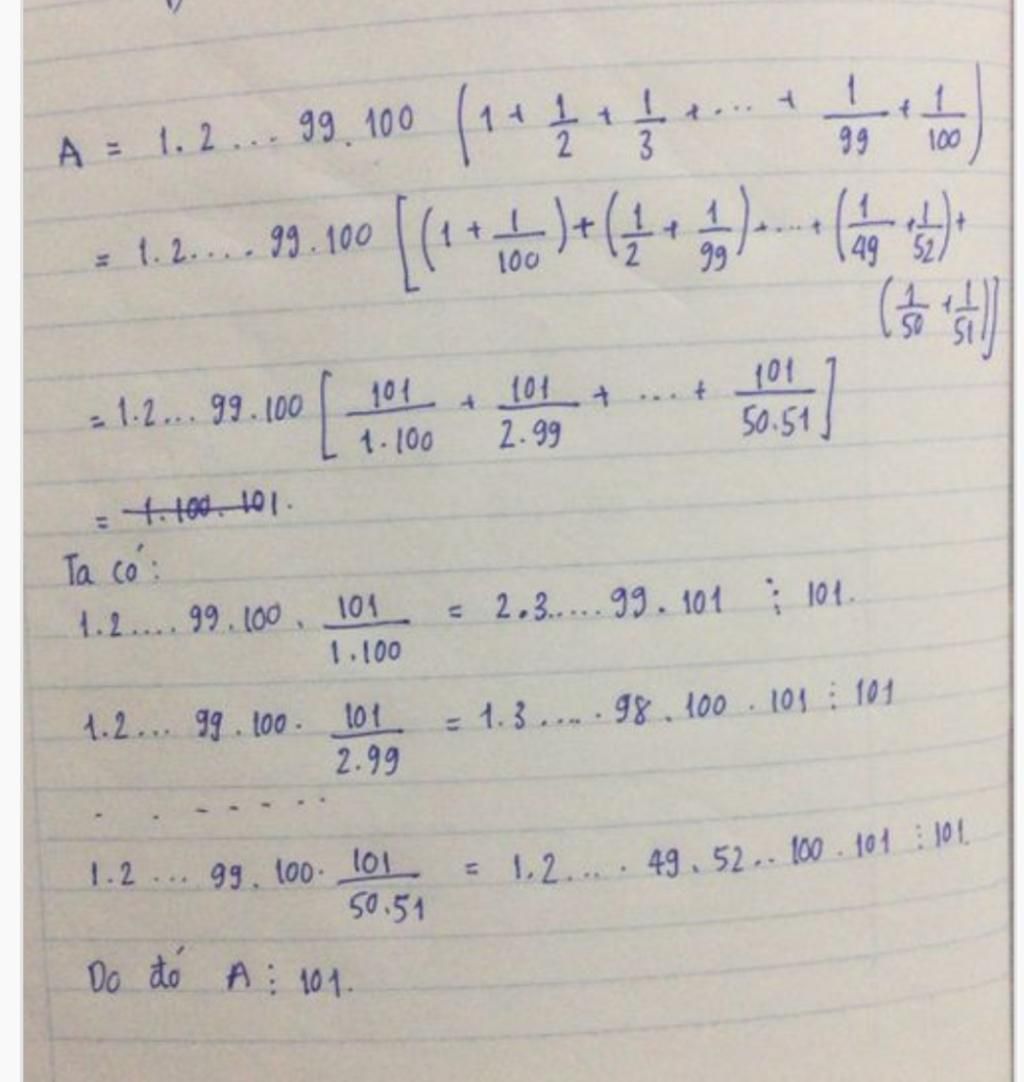 A = 1.2...99.100 (1 + 1/2 + 1/3 + ... + 1/99 + 1/100)
= 1.2....99.100 [(1 + 1/100) + (1/2 + 1/99) + ... + (1/49 + 1/52) +
(1/50 + 1/51)]
= 1.2...99.100 [101/1.100 + 101/2.99 + ... + 101/50.51]
= 1.100.101.
Ta có:
1.2....99.100. 101/1.100 = 2.3....99.101 ⋮ 101.
1.2...99.100. 101/2.99 = 1.3....98.100.101 ⋮ 101
.......
1.2...99.100. 101/50.51 = 1.2....49.52..100.101 ⋮ 101.
Do đó A ⋮ 101.